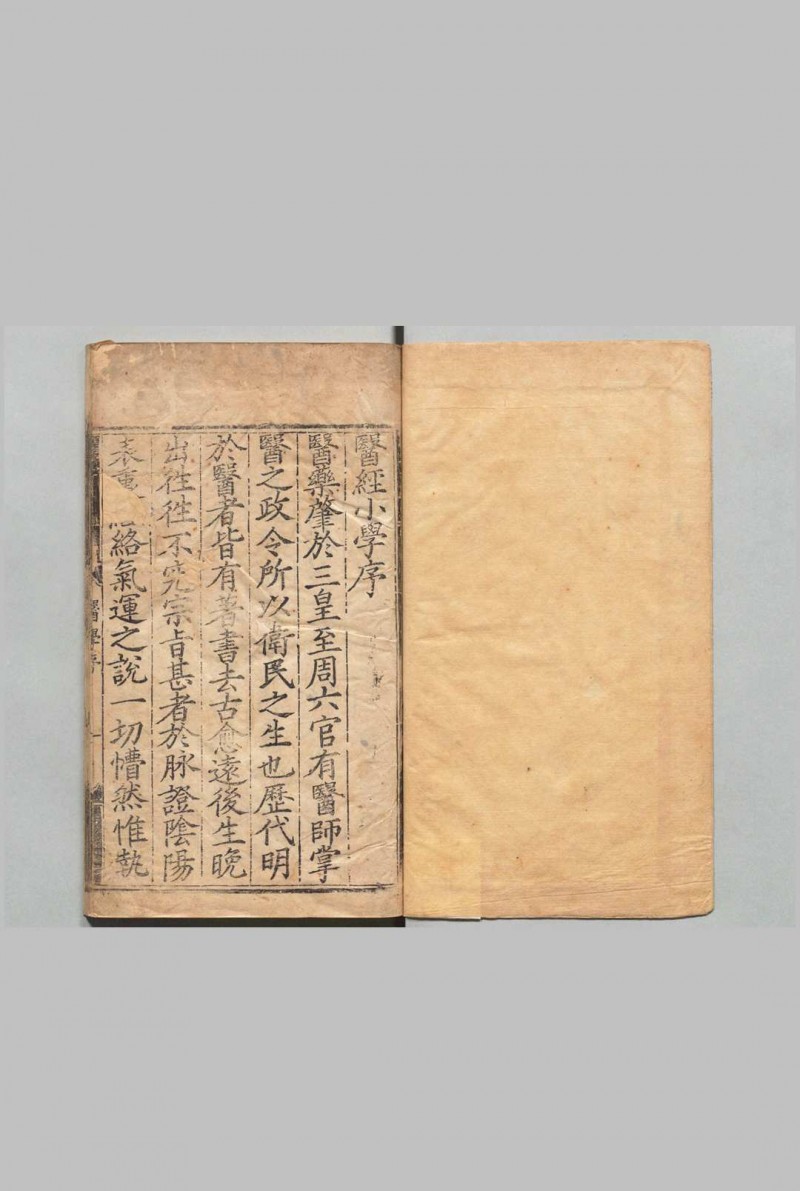 醫經小學序
醫藥肇於三皇至周六官有醫師掌
醫之政令所以衛民之生也歷代明
於醫者皆有著書去古愈遠後生晚
出徃徃不究宗旨甚者於脉證陰陽
表裏絡氣運之說一切懵然惟執
醫學序
一